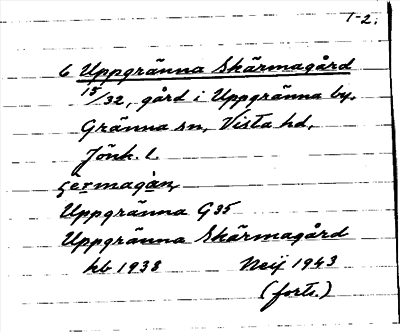 1-2.
6 Uppgränna Skärmagård
15/32, gård i Uppgränna by.
Gränna sn, Vista hd,
Jönk. l.
Uppgränna G35
Uppgränna Skärmagård
hb 1938 Neij 1943
(forts.)